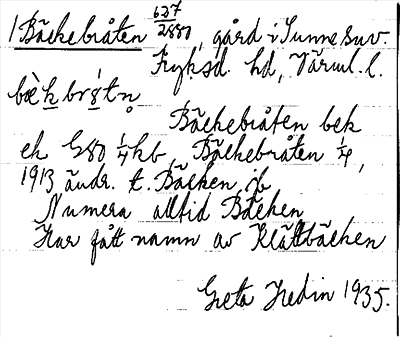 1 Bäckebråten 627/2880, gård i Sunne sn v.
Fryksd. hd, Värml. l.
bæ̀kbrı̣̊tn̥
Bäckebråten bek
ek G80 1/4 hb Bäckebråten 1/4,
1913 ändr. t. Bäcken, ib
Numera alltid Bäcken
Har fått namn av Klättbäcken
Greta Hedin 1935.